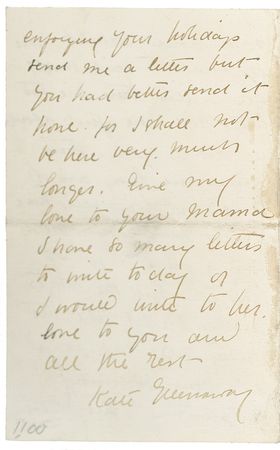 enjoying your holidays
send me a letter but
you had better send it
home. for I shall not
be here very much
longer. Give my
love to your Mama
I have so many letters
to write today or
I would write to her.
love to you and
all the rest
Kate Greenaway
1100